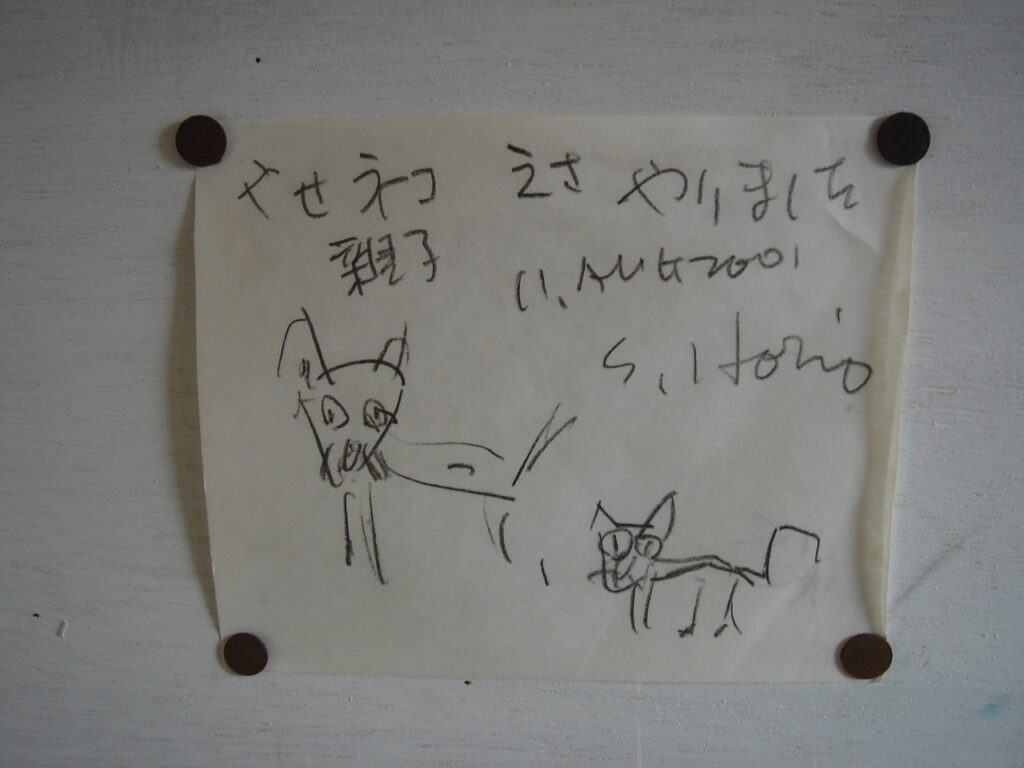 やせネコ えさ やりました
親子 11. AUG 2001
S. Horio